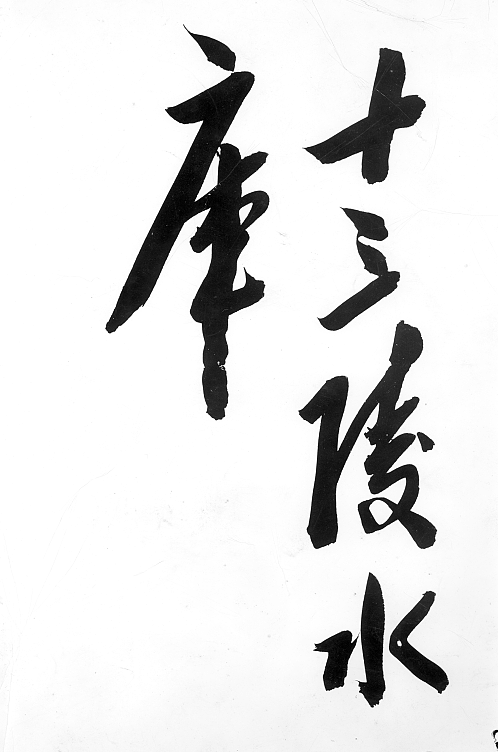 十三陵水
庫